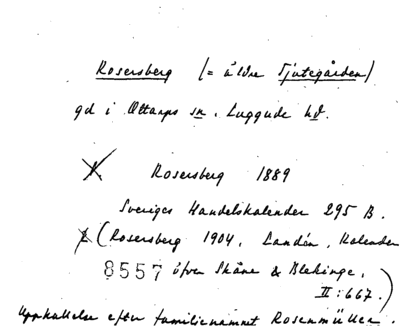 Rosersberg (= äldre Tjutegården)
gd i Ottarps sn, Luggude hd.
Rosersberg 1889
Sveriges Handelskalender 295 B.
(Rosersberg 1904, Landén, Kalender
8557 öfver Skåne & Blekinge,
II:667.)
Uppkallelse efter familjenamnet Rosenmüller.